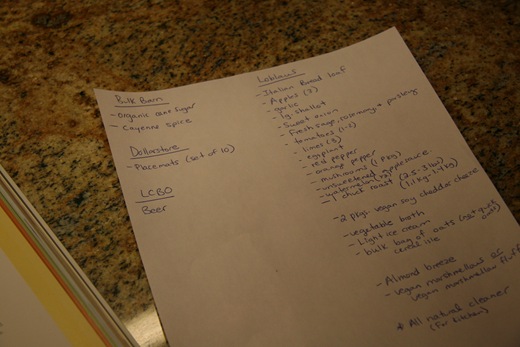 Bulk Barn
- Organic cane sugar
- Cayenne spice
Dollarstore
- Placemats (set of 10)
LCBO
Beer
Loblaws
- Italian Bread loaf
- Apples (3)
- garlic
- 1g. shallot
- Sweet onion
- Fresh sage, rosemary, + parsley
- tomatoes (1-2)
- limes (3)
- eggplant
- red pepper
- orange pepper
- mushrooms (1 pkg)
- unsweetened applesauce
- watermelon
- 1 chuck roast (2.5-3 lbs)
- 2 pkgs. vegan soy cheddar cheese
- vegetable broth
- Light ice cream
- bulk bag of oats (not quick oats)
cereal isle
- Almond breeze
- vegan marshmallows or
vegan marshmallow fluff
* All natural cleaner
(For kitchen)